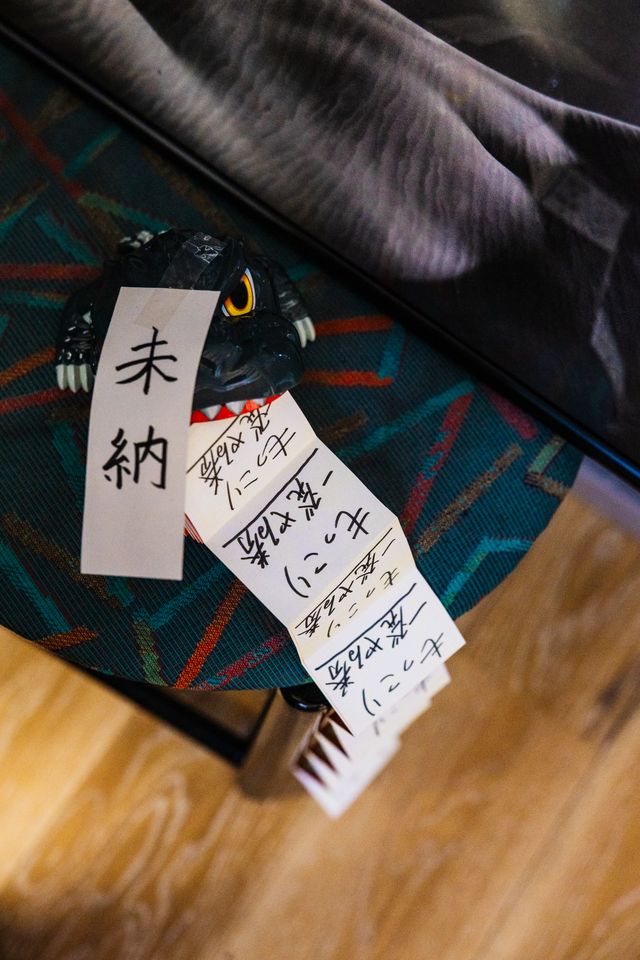 未納
もっこり
一発やる券
もっこり
一発やる券
もっこり
一発やる券
もっこり
一発やる券